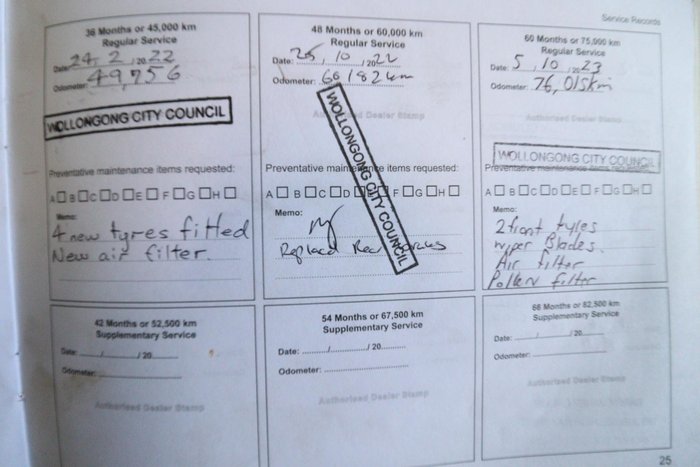 Service Records
36 Months or 45,000 km
Regular Service
Date: 24, 2, 2022
Odometer: 49,756
WOLLONGONG CITY COUNCIL
Preventative maintenance items requested:
A□ B□ C□ D□ E□ F□ G□ H□
Memo:
4 new tyres fitted
New air filter.
48 Months or 60,000 km
Regular Service
Date: 25, 10, 2022
Odometer: 66182km
Authorised Dealer Stamp
WOLLONGONG CITY COUNCIL
Preventative maintenance items requested:
A□ B□ C□ D□ F□ G□ H□
Memo:
Replaced Rear
60 Months or 75,000 km
Regular Service
Date: 5, 10, 2023
Odometer: 76,015km
Authorised Dealer Stamp
WOLLONGONG CITY COUNCIL
Preventative maintenance items requested:
A□ B□ C□ D□ E□ F□ G□ H□
Memo:
2 front tyres
wiper Blades.
Air filter
Pollen filter
42 Months or 52,500 km
Supplementary Service
Date: ....../....../20......
Odometer: ......
Authorised Dealer Stamp
54 Months or 67,500 km
Supplementary Service
Date: ....../....../20......
Odometer: ......
Authorised Dealer Stamp
66 Months or 82,500 km
Supplementary Service
Date: ....../....../20......
Odometer: ......
Authorised Dealer Stamp
25